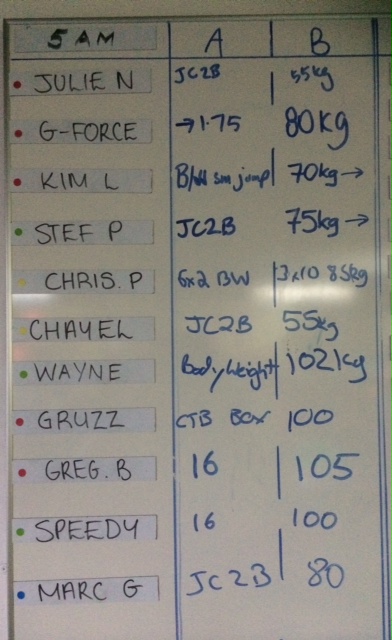 5 AM A B
JULIE N JC2B 55kg
G-FORCE →1.75 80kg
KIM L B/W sm jump 70kg→
STEF P JC2B 75kg→
CHRIS. P 6x2 BW 3x10 85kg
CHAYEL JC2B 55kg
WAYNE Bodyweight 102kg
GRUZZ CTB BOX 100
GREG. B 16 105
SPEEDY 16 100
MARC G JC2B 80